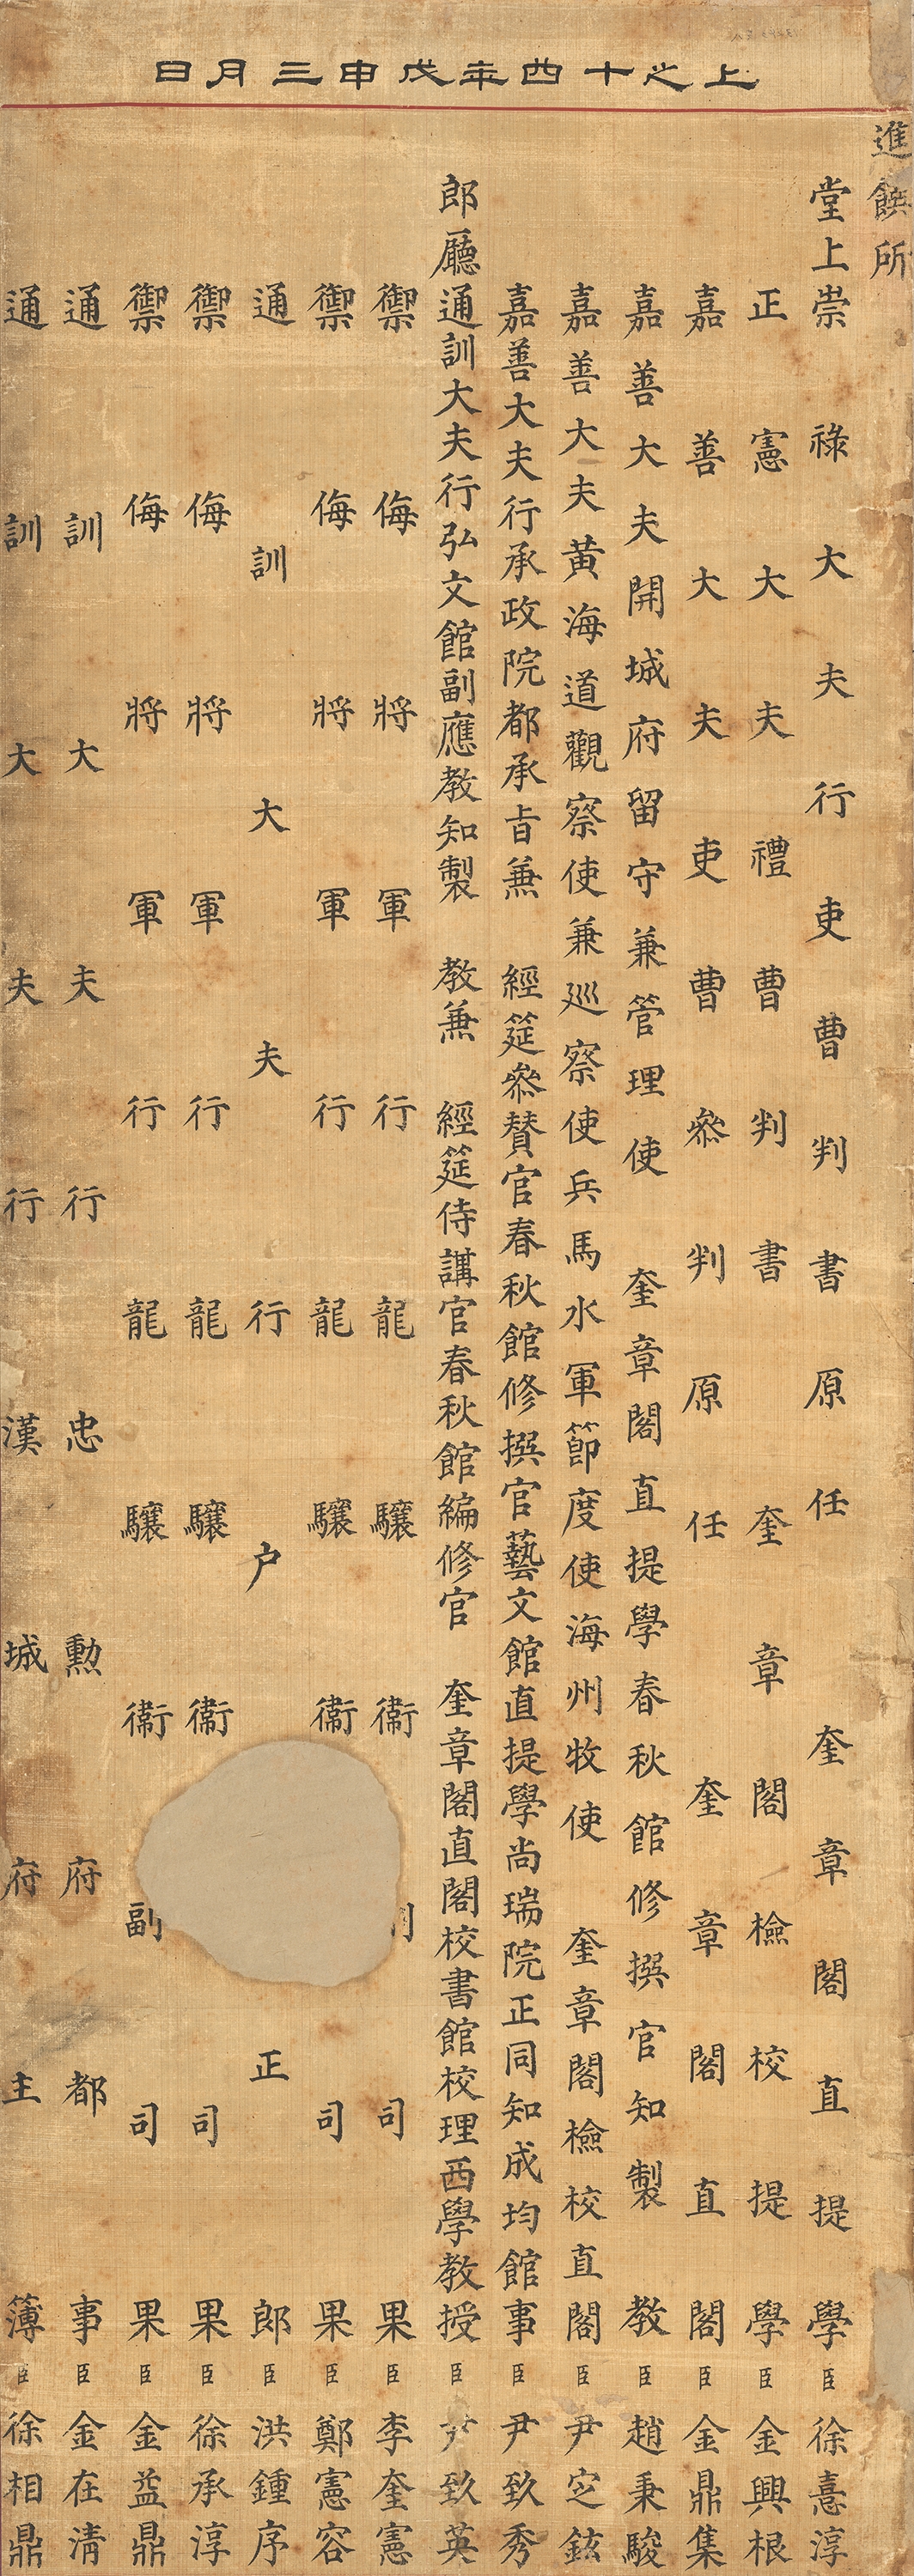 上之十四年戊申三月日
進饌所
堂上崇祿大夫行吏曹判書原任奎章閣直提學臣徐憙淳
正憲大夫禮曹判書奎章閣檢校提學臣金興根
嘉善大夫吏曹叅判原任奎章閣直閣臣金鼎集
嘉善大夫開城府留守兼管理使 奎章閣直提學春秋館修撰官知製教臣趙秉駿
嘉善大夫黃海道觀察使兼巡察使兵馬水軍節度使海州牧使 奎章閣檢校直閣臣尹㝎鉉
嘉善大夫行承政院都承旨兼 經筵叅贊官春秋館修撰官藝文館直提學尚瑞院正同知成均館事臣尹致秀
郎廳通訓大夫行弘文館副應教知製 教兼 經筵侍講官春秋館編修官 奎章閣直閣校書館校理西學教授臣尹致英
禦侮將軍行龍驤衛司果臣李奎憲
禦侮將軍行龍驤衛司果臣鄭憲容
通訓大夫行戶正郎臣洪鍾序
禦侮將軍行龍驤衛司果臣徐承淳
禦侮將軍行龍驤衛副司果臣金益鼎
通訓大夫行忠勳府都事臣金在清
通訓大夫行漢城府主簿臣徐相鼎